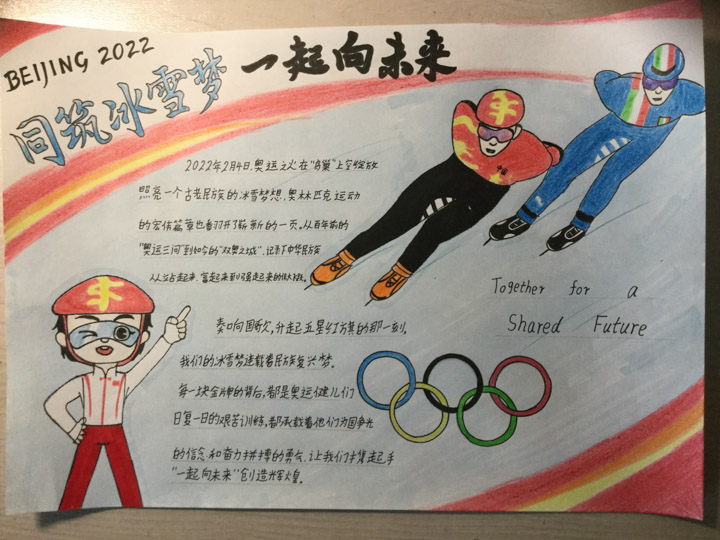 BEIJING 2022
同筑冰雪梦 一起向未来
2022年2月4日,奥运之火在“鸟巢”上空绽放
照亮一个古老民族的冰雪梦想,奥林匹克运动
的宏伟篇章也翻开了崭新的一页。从百年前的
“奥运三问”到如今的“双奥之城”,记录下中华民族
从站起来、富起来到强起来的
Together for a
Shared Future
奏响国歌,升起五星红旗的那一刻,
我们的冰雪梦连载着民族复兴梦。
每一块金牌的背后,都是奥运健儿们
日复一日的艰苦训练,都承载着他们为国争光
的信念和奋力拼搏的勇气,让我们携起手
“一起向未来”创造辉煌。